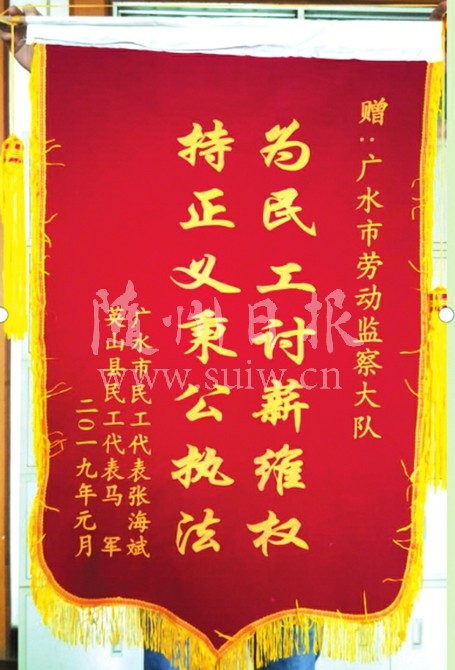 赠：广水市劳动监察大队
为民工讨薪维权
持正义秉公执法
广水市民工代表张海斌
英山县民工代表马 军
二〇一九年元月
随州日报
www.suiw.cn